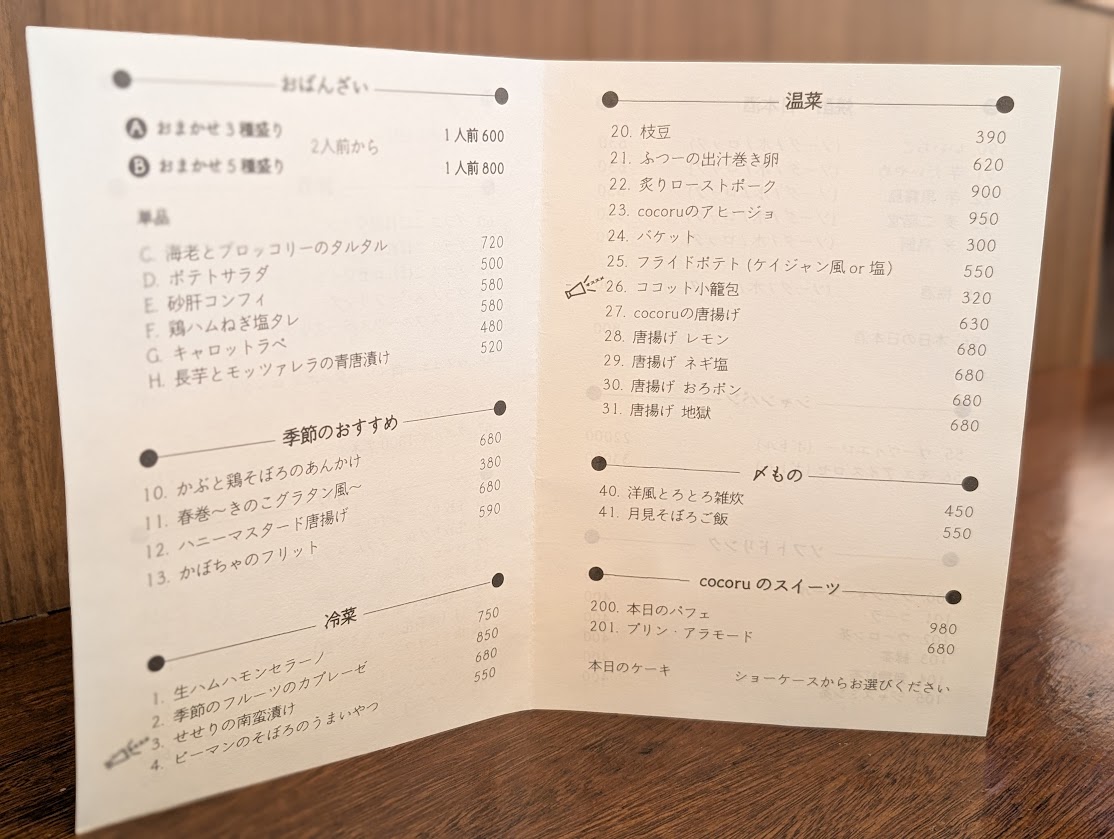 おばんざい
A おまかせ3種盛り 1人前 600
2人前から
B おまかせ5種盛り 1人前 800
単品
C. 海老とブロッコリーのタルタル 720
D. ポテトサラダ 500
E. 砂肝コンフィ 580
F. 鶏ハムねぎ塩タレ 580
G. キャロットラペ 480
H. 長芋とモッツァレラの青唐漬け 520
季節のおすすめ
10. かぶと鶏そぼろのあんかけ 680
11. 春巻〜きのこグラタン風〜 380
12. ハニーマスタード唐揚げ 680
13. かぼちゃのフリット 590
冷菜
1. 生ハムハモンセラーノ 750
2. 季節のフルーツのカプレーゼ 850
3. せせりの南蛮漬け 680
4. ピーマンのそぼろのうまいやつ 550
温菜
20. 枝豆 390
21. ふつーの出汁巻き卵 620
22. 炙りローストポーク 900
23. cocoruのアヒージョ 950
24. バケット 300
25. フライドポテト (ケイジャン風 or 塩) 550
26. ココット小籠包 320
27. cocoruの唐揚げ 630
28. 唐揚げ レモン 680
29. 唐揚げ ネギ塩 680
30. 唐揚げ おろポン 680
31. 唐揚げ 地獄 680
〆もの
40. 洋風とろとろ雑炊 450
41. 月見そぼろご飯 550
cocoru のスイーツ
200. 本日のパフェ 980
201. プリン・アラモード 680
本日のケーキ ショーケースからお選びください